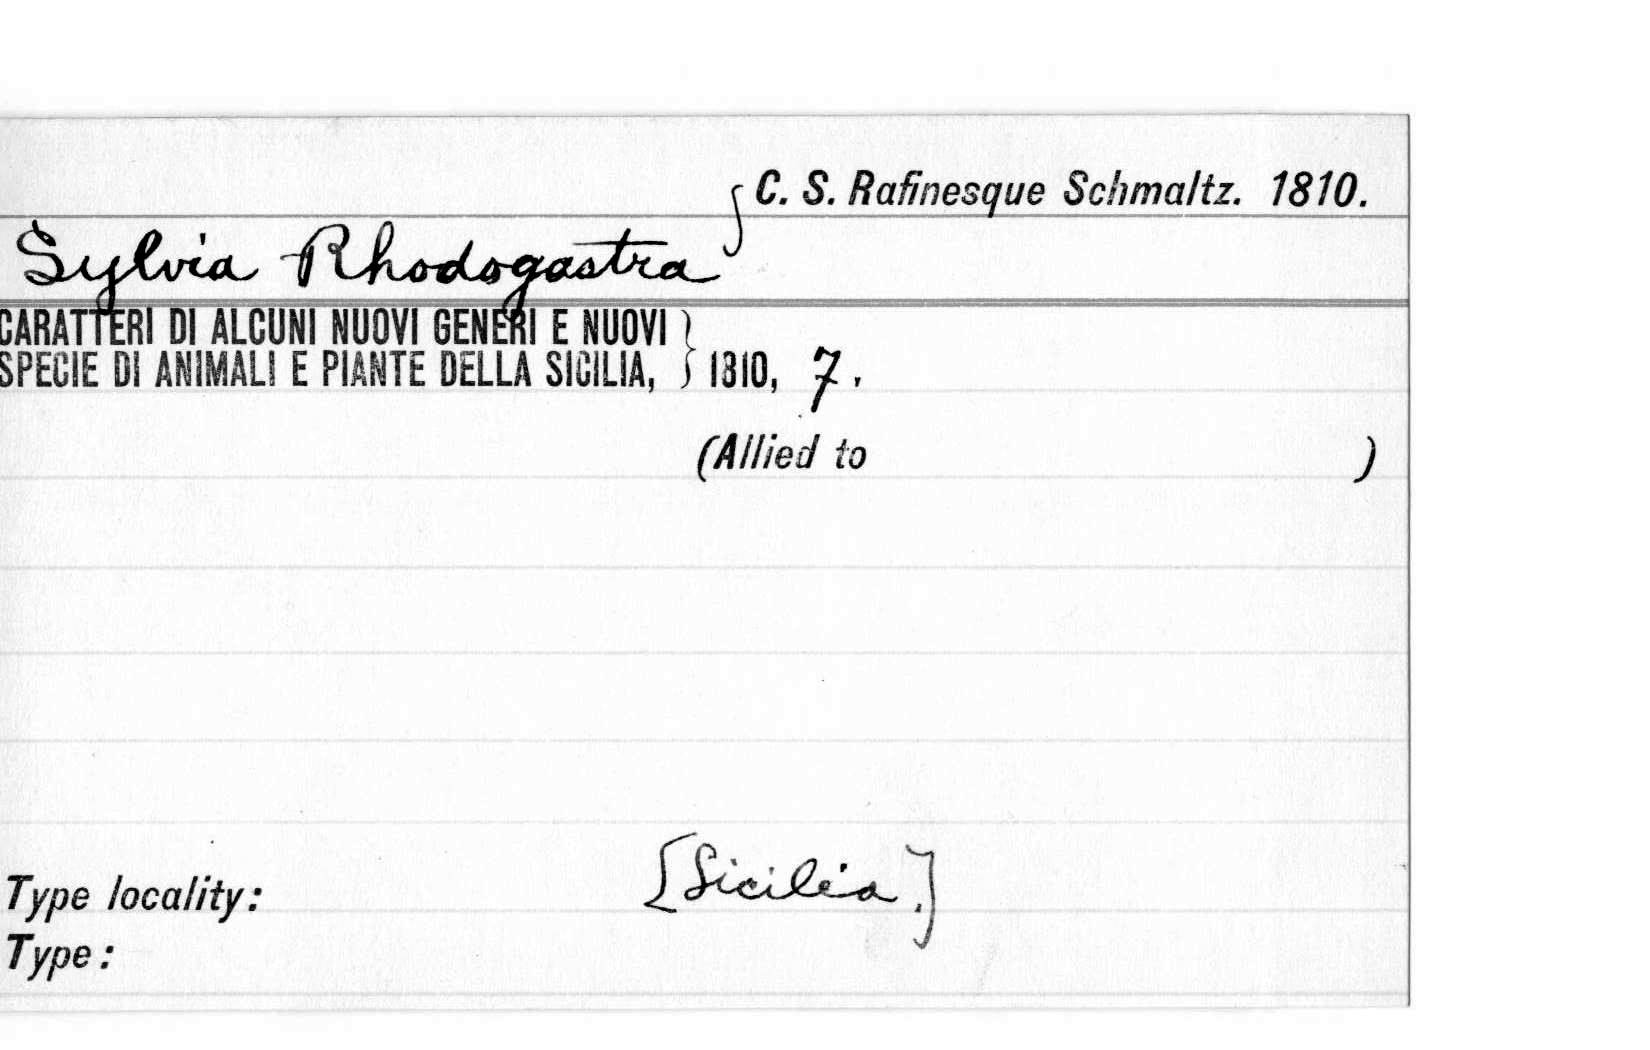 C. S. Rafinesque Schmaltz. 1810.
Sylvia Rhodogastra
CARATTERI DI ALCUNI NUOVI GENERI E NUOVI
SPECIE DI ANIMALI E PIANTE DELLA SICILIA, } 1810, 7.
(Allied to )
Type locality: [Sicilia.]
Type: